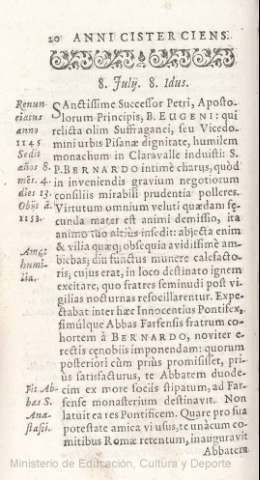 20 ANNI CISTERCIENS.
8. Julij. 8. Idus.
Renun-
ciatus
anno
1145
Sedit
años 8.
mēs. 4.
dies 13.
Obijt ā.
1153.
Amāt
humi-
lia.
Fit Ab-
bas S.
Ana-
stasii.
SAnctissime Successor Petri, Aposto-
lorum Principis, B. EUGENI: qui
relicta olim Suffraganei, seu Vicedo-
mini urbis Pisanæ dignitate, humilem
monachum in Claravalle induisti: S.
P. BERNARDO intimè charus, quòd
in inveniendis gravium negotiorum
consiliis mirabili prudentia polleres.
Virtutum omnium veluti quædam se-
cunda mater est animi demissio, ita
animo tuo altiùs insedit: abjecta enim
& vilia quæq; obsequia avidissimè am-
biebas; diu functus munere calefacto-
ris, cujus erat, in loco destinato ignem
excitare, quo fratres seminudi post vi-
gilias nocturnas refocillarentur. Expe-
ctabat inter hæc Innocentius Pontifex,
simúlque Abbas Farfensis fratrum co-
hortem à BERNARDO, noviter e-
rectis cœnobiis imponendam: quorum
posteriori cùm priùs promisisset, priù
ùs satisfacturus, te Abbatem duode-
cim ex more sociis stipatum, ad Far-
fense monasterium destinavit. Non
latuit ea res Pontificem. Quare pro sua
potestate amica vi usus, te unàcum co-
mitibus Romæ retentum, inauguravit
Abbatem
Ministerio de Educación, Cultura y Deporte